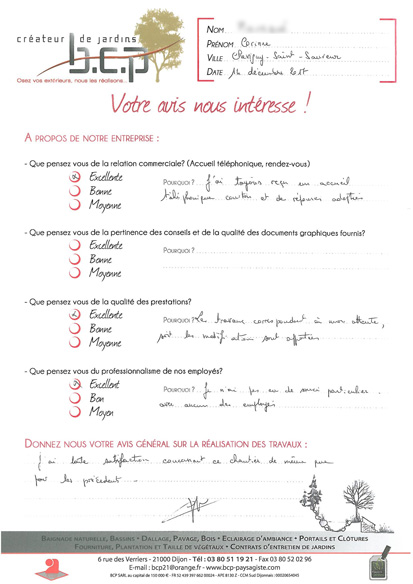 créateur de jardins
b.c.p
Osez vos extérieurs, nous les réalisons...
NOM
PRÉNOM Corinne
VILLE Chevigny-Saint-Sauveur
DATE 14 décembre 2017
Votre avis nous intéresse !
A PROPOS DE NOTRE ENTREPRISE :
- Que pensez vous de la relation commerciale? (Accueil téléphonique, rendez-vous)
Excellente
POURQUOI ? J'ai toujours reçu un accueil
Bonne
téléphonique courtois et de réponses adaptées
Moyenne
- Que pensez vous de la pertinence des conseils et de la qualité des documents graphiques fournis?
Excellente
POURQUOI ?
Bonne
Moyenne
- Que pensez vous de la qualité des prestations?
Excellente
POURQUOI ? Les travaux correspondent à mon attente,
Bonne
sont les modifications sont apportées
Moyenne
- Que pensez vous du professionnalisme de nos employés?
Excellent
POURQUOI ? Je n'ai pas eu de souci particulier
Bon
avec aucun des employés
Moyen
DONNEZ NOUS VOTRE AVIS GÉNÉRAL SUR LA RÉALISATION DES TRAVAUX :
J'ai toute satisfaction concernant ce chantier de même que
pour les précédent
BAIGNADE NATURELLE, BASSINS • DALLAGE, PAVAGE, BOIS • ECLAIRAGE D'AMBIANCE • PORTAILS ET CLÔTURES
FOURNITURE, PLANTATION ET TAILLE DE VÉGÉTAUX • CONTRATS D'ENTRETIEN DE JARDINS
6 rue des Verriers - 21000 Dijon - Tél : 03 80 51 19 21 - Fax : 03 80 52 02 96
E-mail : bcp21@orange.fr - www.bcp-paysagiste.com